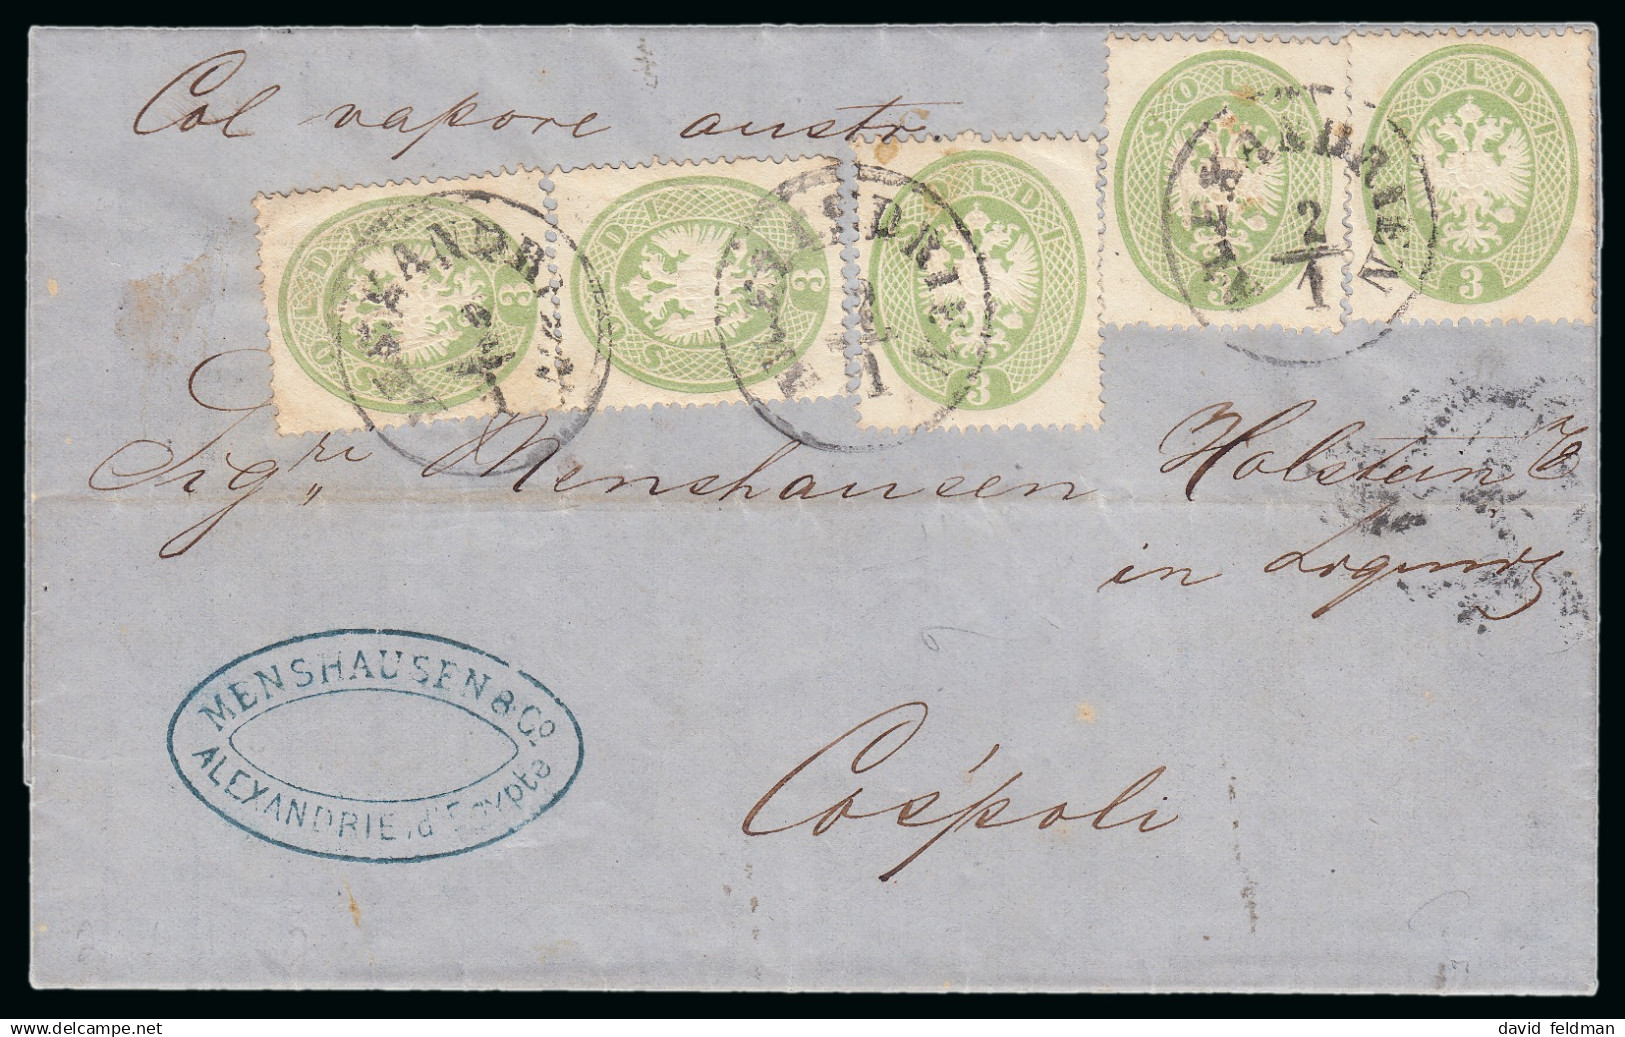 Col vapore austr.
SOLDI 3
SOLDI 3
SOLDI 3
SOLDI 3
SOLDI 3
ALEXANDRIEN
2/1
ALEXANDRIEN
2/1
ALEXANDRIEN
2/1
Sigri Menshausen Holstein &
in
Cospoli
MENSHAUSEN & Co.
ALEXANDRIE, d'Egypte
david feldman